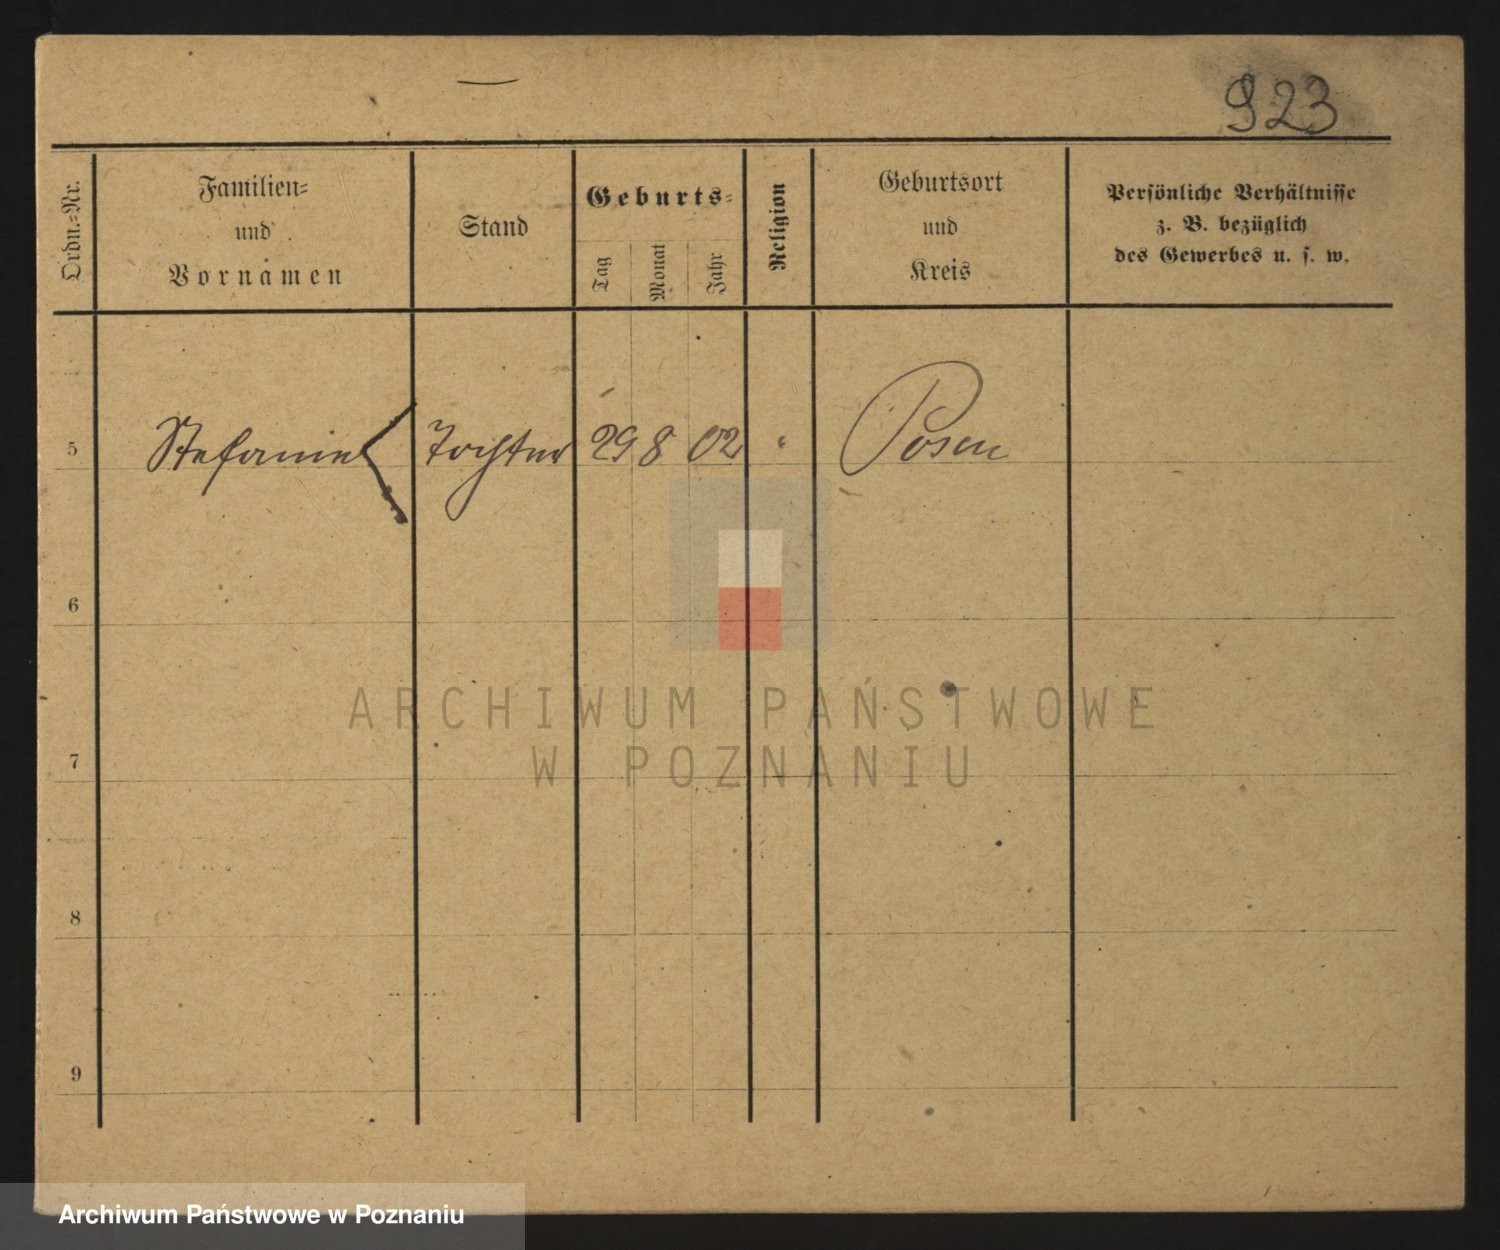 923
Ordn.=Nr.
Familien=
und
Vornamen
Stand
Geburts=
Tag
Monat
Jahr
Religion
Geburtsort
und
Kreis
Persönliche Verhältnisse
z. B. bezüglich
des Gewerbes u. s. w.
5 Stefanie Tochter 29 8 02 " Posen
6
7
8
9
ARCHIWUM PAŃSTWOWE
W POZNANIU
Archiwum Państwowe w Poznaniu